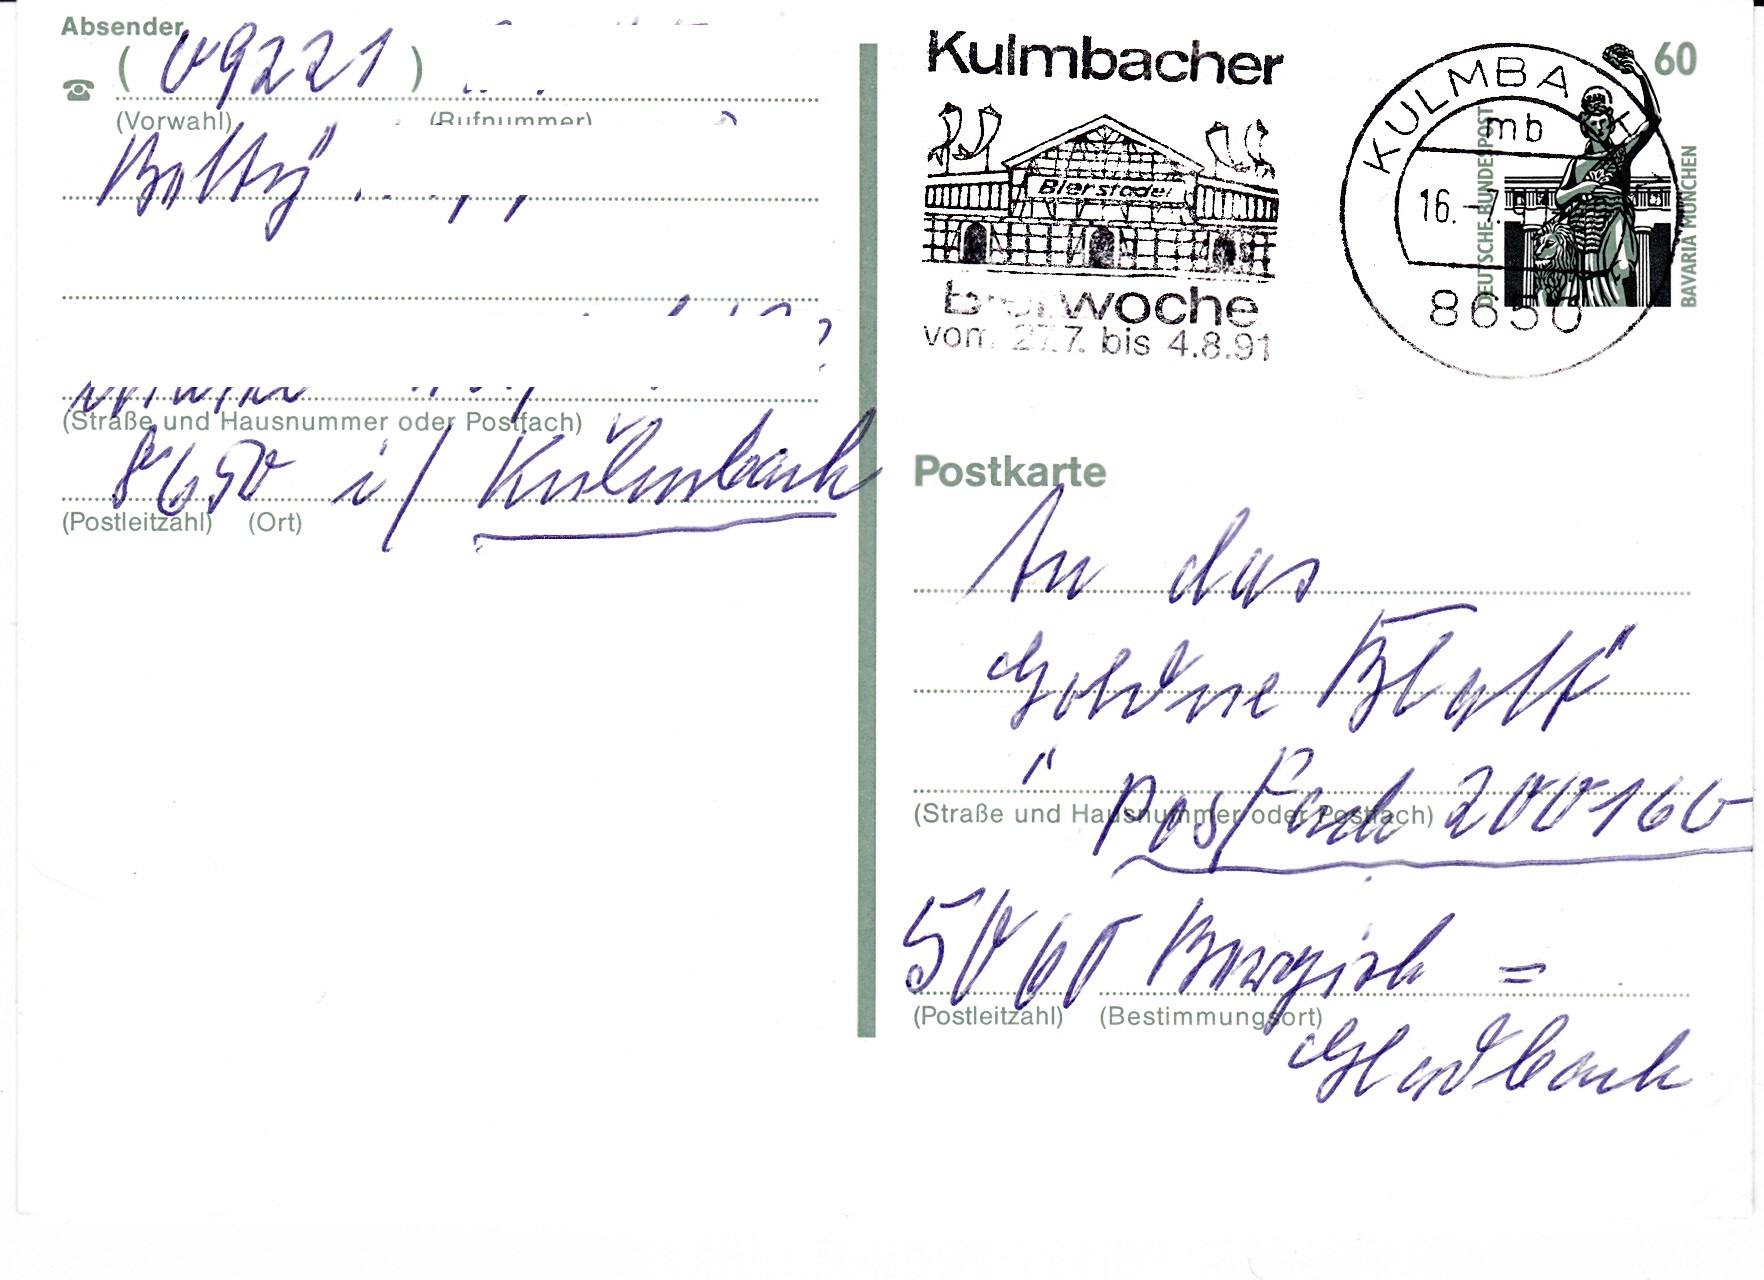 Absender
( 09221 )
(Vorwahl) (Rufnummer)
(Straße und Hausnummer oder Postfach)
8650 i/ Kulmbach
(Postleitzahl) (Ort)
Kulmbacher
Bierstadel
Bierwoche
vom 27.7. bis 4.8.91
KULMBACH
mb
16.-7.
8650
60
DEUTSCHE BUNDESPOST
BAVARIA MÜNCHEN
Postkarte
An das
Goldne Blatt"
" Postfach 200160
(Straße und Hausnummer oder Postfach)
5060 Bergisch =
(Postleitzahl) (Bestimmungsort)
Gladbach